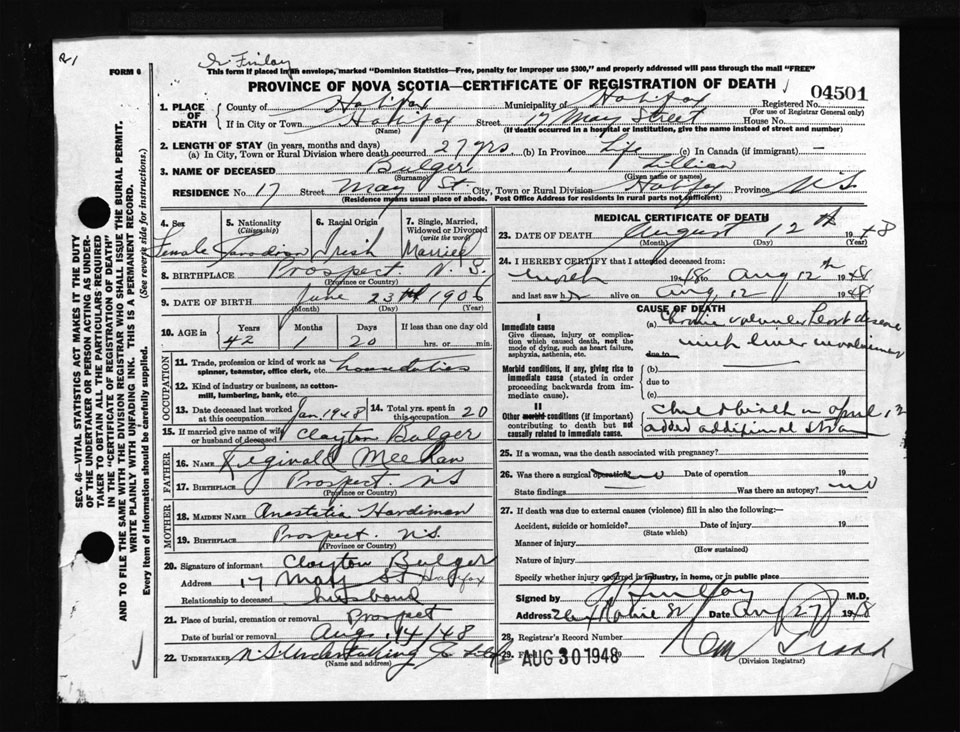 Dr Finlay
FORM 6
This form if placed in an envelope, marked "Dominion Statistics—Free, penalty for improper use $300," and properly addressed will pass through the mail "FREE"
PROVINCE OF NOVA SCOTIA—CERTIFICATE OF REGISTRATION OF DEATH
04501
1. PLACE OF DEATH
County of Halifax Municipality of Halifax Registered No.
(For use of Registrar General only)
If in City or Town Halifax Street 17 May Street House No.
(Name) (If death occurred in a hospital or institution, give the name instead of street and number)
2. LENGTH OF STAY (in years, months and days)
(a) In City, Town or Rural Division where death occurred 27 yrs. (b) In Province Life (c) In Canada (if immigrant) —
3. NAME OF DECEASED Bulger, Lillian
(Surname) (Given name or names)
RESIDENCE No. 17 Street May St. City, Town or Rural Division Halifax Province N.S.
(Residence means usual place of abode. Post Office Address for residents in rural parts not sufficient)
4. Sex Female
5. Nationality (Citizenship) Canadian
6. Racial Origin Irish
7. Single, Married, Widowed or Divorced (write the word) Married
8. BIRTHPLACE Prospect N.S.
(Province or Country)
9. DATE OF BIRTH June 23rd 1906
(Month) (Day) (Year)
10. AGE in Years Months Days If less than one day old
42 1 20 hrs. or min.
OCCUPATION
11. Trade, profession or kind of work as spinner, teamster, office clerk, etc.
12. Kind of industry or business, as cotton-mill, lumbering, bank, etc.
13. Date deceased last worked at this occupation Jan. 1948
14. Total yrs. spent in this occupation 20
15. If married give name of wife or husband of deceased Clayton Bulger
FATHER
16. NAME Reginald Meehan
17. BIRTHPLACE Prospect NS
(Province or Country)
MOTHER
18. MAIDEN NAME Anastatia Hardiman
19. BIRTHPLACE Prospect N.S.
(Province or Country)
20. Signature of informant Clayton Bulger
Address 17 May St Halifax
Relationship to deceased husband
21. Place of burial, cremation or removal Prospect
Date of burial or removal Aug. 14/48
22. UNDERTAKER N.S. Undertaking Co
(Name and address)
MEDICAL CERTIFICATE OF DEATH
23. DATE OF DEATH August 12th 1948
(Month) (Day) (Year)
24. I HEREBY CERTIFY that I attended deceased from
March 1948 to Aug 12th 1948
and last saw h alive on Aug 12 1948
CAUSE OF DEATH
I
Immediate cause
Give disease, injury or complication which caused death, not the mode of dying, such as heart failure, asphyxia, asthenia, etc.
(a) Chronic valvular heart disease
due to with liver involvement
Morbid conditions, if any, giving rise to immediate cause (stated in order proceeding backwards from immediate cause).
(b)
due to
(c)
II
Other morbid conditions (if important) contributing to death but not causally related to immediate cause.
Child birth in April 12
added additional strain
25. If a woman, was the death associated with pregnancy?
26. Was there a surgical operation? no Date of operation 19
State findings Was there an autopsy? no
27. If death was due to external causes (violence) fill in also the following:—
Accident, suicide or homicide? Date of injury 19
(State which)
Manner of injury
(How sustained)
Nature of injury
Specify whether injury occurred in industry, in home, or in public place
Signed by Finlay M.D.
Address Date Aug 27 1948
28. Registrar's Record Number
29. AUG 30 1948 19
(Division Registrar)
SEC. 46—VITAL STATISTICS ACT MAKES IT THE DUTY
OF THE UNDERTAKER OR PERSON ACTING AS UNDER-
TAKER TO OBTAIN ALL THE PARTICULARS REQUIRED
IN THE "CERTIFICATE OF REGISTRATION OF DEATH"
AND TO FILE THE SAME WITH THE DIVISION REGISTRAR WHO SHALL ISSUE THE BURIAL PERMIT.
WRITE PLAINLY WITH UNFADING INK. THIS IS A PERMANENT RECORD.
Every item of information should be carefully supplied. (See reverse side for instructions.)